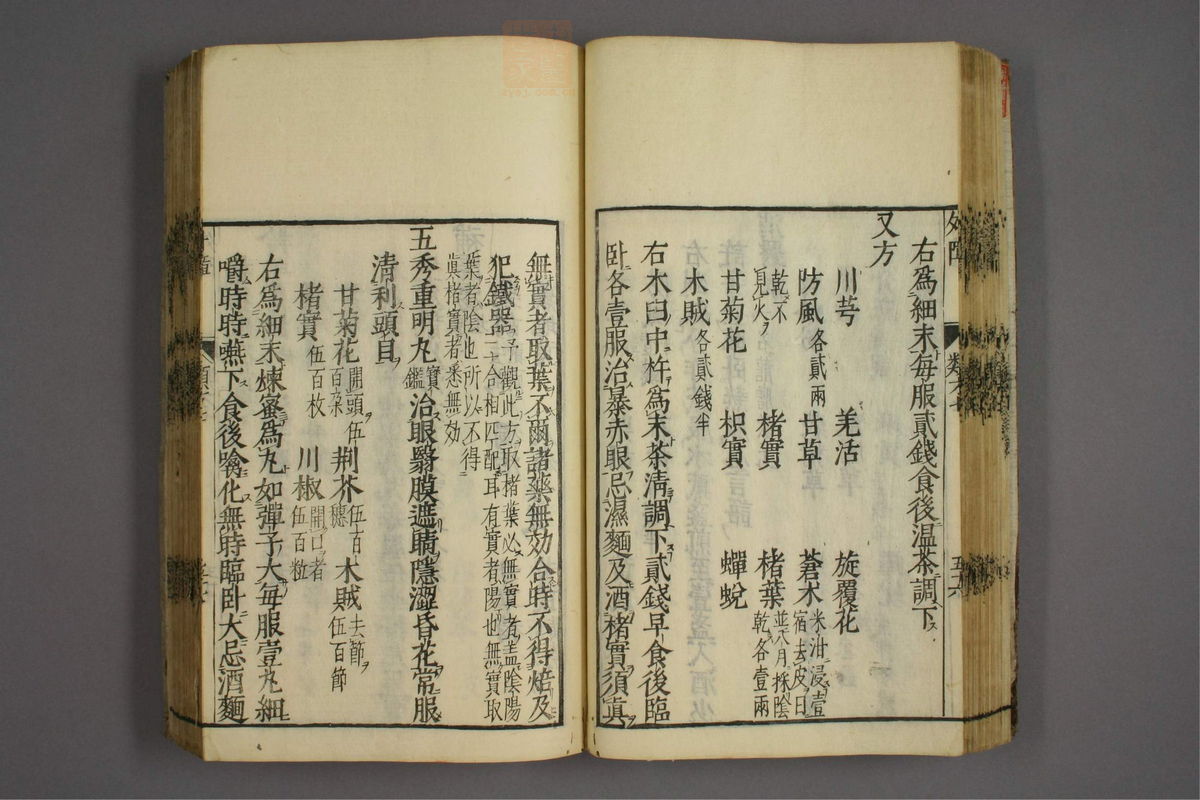 右爲細末每服貳錢食後温茶調下
又方
川芎 羌活 旋覆花
防風各貳兩 甘草 蒼木米泔浸壹宿去皮日
乾不見火 楮實 楮葉並八月採陰乾各壹兩
甘菊花 枳實 蟬蛻
木賊各貳錢半
右木臼中杵爲末茶淸調下貳錢早食後臨
卧各壹服治暴赤眼忌濕麵及酒楮實須眞
無實者取葉不爾諸藥無効合時不得焙及
犯鐵器予觀此方取楮葉必無實者盖陰陽二合相匹配耳有實者陽也無實取
葉者陰也所以不得眞楮實者悉無効
五秀重明丸寶鑑治眼翳膜遮睛隱澀昏花常服
清利頭目
甘菊花開頭伍百朶 荆芥伍百穗 木賊去節伍百節
楮實伍百枚 川椒開口者伍百粒
右爲細末煉蜜爲丸如彈子大每服壹丸細
嚼時時嚥下食後噙化無時臨卧大忌酒麵